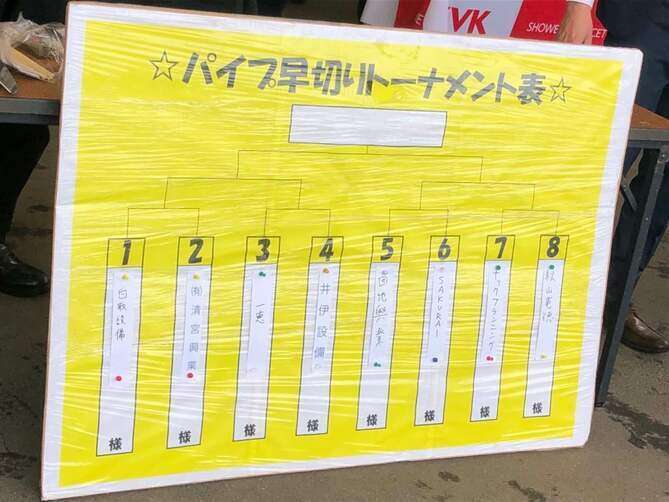 KVK
SHOWE
CET
☆パイプ早切りトーナメント表☆
1
2
3
4
5
6
7
8
白取設備
㈲清宮興業
一恵
井伊設備
SAKURAI
ナックプランニング
様
様
様
様
様
様
様
様